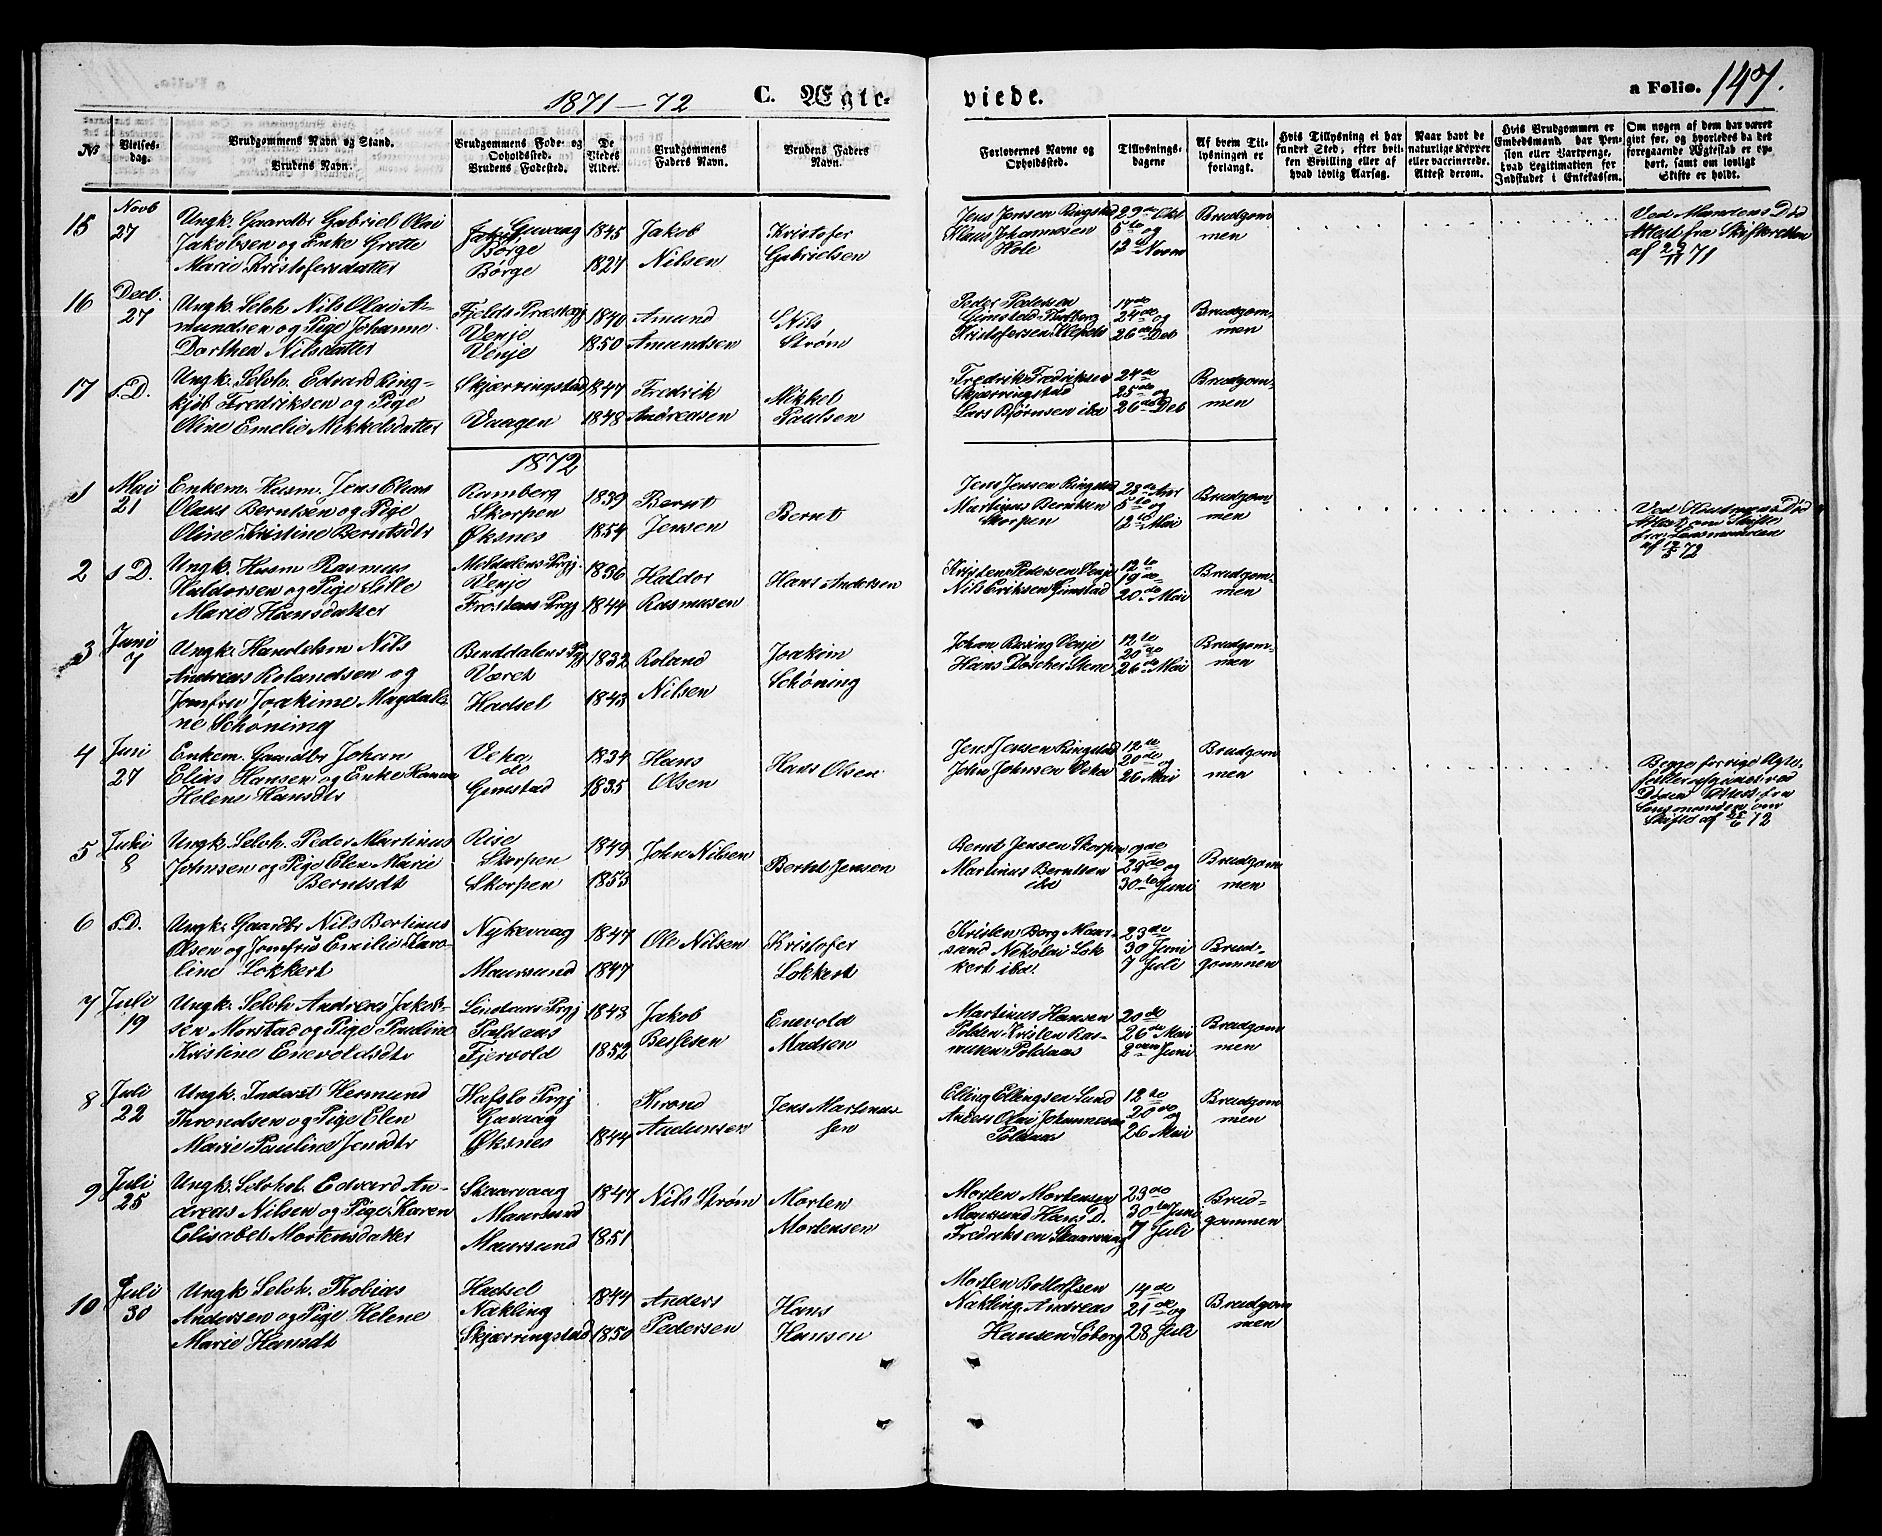 1871–72 C. Ægte- viede. a Folio. 147.
№
Vielses-dag.
Brudgommens Navn og Stand.
Brudens Navn.
Brudgommens Føde- og Opholdssted.
Brudens Fødested.
De Viedes Alder.
Brudgommens Faders Navn.
Brudens Faders Navn.
Forlovernes Navne og Opholdssted.
Tillysnings-dagene
Af hvem Tillysningen er forlangt.
Hvis Tillysning ei har fundet Sted, efter hvilken Bevilling eller af hvad lovlig Aarsag.
Naar havt de naturlige Kopper eller vaccinerede. Attest derom.
Hvis Brudgommen er Embedsmand, har Pension eller Vartpenge, hvad Legitimation for Indskudet i Enkekassen.
Om nogen af dem har været gift for, og hvorledes da det foregaaende Ægteskab er ophørt, samt om lovligt Skifte er holdt.
15 Novb 27 Ungk. Gaardbr Gabriel Olai
Jakobsen og Enke Grette
Marie Kristofersdatter
Guvaag
Børge
Børge
1845
1827
Jakob
Nilsen
Kristofer
Gabrielsen
Jens Jensen Ringstad
Klaus Johannesen
Hole
29de Okt
5te og
12te Novm
Brudgom
men
Ved Mandens Død
Attest fra Skifteretten
af 71
16 Decb. 27 Ungk. Selvh Nils Olai A-
mundsen og Pige Johanne
Dorthea Nilsdatter
Fjelds Præstegj
Venje
Venje
1840
1850
Amund
Amundsen
Nils
Strøm
Peder Pedersen
Kristofersen
17de
24de og
26de Deb
Brudgom-
men
17 s. D. Ungk. Selvh. Edvard Ring-
kjøb Fredriksen og Pige
Oline Emelie Mikkelsdatter
Skjærringstad
Vaagen
1847
1848
Fredrik
Andreasen
Mikkel
Paulsen
Fredrik Fredriksen
Skjærringstad
Lars Bjørnsen ibd
24de
25de og
26de Deb
Brudgom-
men
1872
1 Mai 21 Enkem. Husm. Jens Elias
Olaus Berntsen og Pige
Oline Kristine Berntsdtr
Ramberg
Skorpen
Øksnes
1839
1854
Bernt
Jensen
Bernt
Jens Jensen Ringstad
Martinus Berntsen
Skorpen
28de Apr
5te og
12te Mai
Brudgom
men
Ved Hustruens Død
Attest om Skifte
fra Lensmanden
af 72
2 s D. Ungk. Husm Rasmus
Haldorsen og Pige Sille
Marie Hansdatter
Meldalens Prgj
Venje
Frostens Prgj
1836
1844
Haldor
Rasmusen
Hans Andersen
Kristen Pedersen Venje
Nils Eriksen Gimstad
12te
19de
20de Mai
Brudgom-
men
3 Juni 7 Ungk. Handelsm Nils
Andreas Rolandsen og
Jomfru Joakime Magdale-
ne Schöning
Værek
Hadsel
1832
1843
Roland
Nilsen
Joakim
Schöning
Johan Rasing Venje
Hans Döscher Stene
12te
20de
26de Mai
Brudgom-
men
4 Juni 27 Enkem. Gaardbr Johan
Elias Hansen og Enke Hanna
Helene Hansdtr
Veka
do
Gimstad
1834
1835
Hans
Olsen
Hans Olsen
Jens Jensen Ringstad
John Johnsen Veka
12te
20de og
26 Mai
Brudgom
men
Begge forrige Ægte-
feller afgaaet ved
Døden Attest fra
Lensmanden om
Skifte af 72
5 Juli 8 Ungk. Selvh. Peder Martinus
Johnsen og Pige Elen Marie
Berntsdt
Rise
Skorpen
Skorpen
1849
1853
John Nilsen
Bernt Jensen
Bernt Jensen Skorpen
Martinus Berntsen
ibd
23de og
30te Juni
Brudgom-
men
6 s. D. Ungk. Gaardbr Nils Bertinus
Olsen og Jomfru Emilie Karo-
line Lokkert
Nykvaag
Maursund
1847
1847
Ole Nilsen
Kristofer
Lokkert
Kristen Berg Maur-
sund Nikolai Lok
kert ibd
23de
30 Juni
7 Juli
Brud-
gommen
7 Juli 19 Ungk. Selvh Andreas Jakob-
sen Morstad og Pige Pauline
Kristine Enevoldsdtr
Lindaas Prgj
Poldaas
Fjervold
1843
1852
Jakob
Bessesen
Enevold
Madsen
Martinus Hansen
Polden Kristen Ras-
musen Poldaas
20de
26de Mai
2den Juni
Brudgom
men
8 Juli 22 Ungk. Inderst Hermund
Throndsen og Pige Elen
Marie Pauline Jensdtr
Hafslo Prgj
Guvaag
Øksnes
1844
Thrond
Audunsen
Jens Martinus
sen
Elling Ellingsen Lund
Anders Olai Johannesen
Poldaas
12te
20de og
26 Mai
Brudgom
men
9 Juli 25 Ungk. Selvhol. Edvard An-
dreas Nilsen og Pige Karen
Elisabet Mortensdatter
Skaarvaag
Maursund
Maursund
1847
1851
Nils Strøm
Morten
Mortensen
Morten Mortensen
Maursund Hans D.
Fredriksen Skaarvaag
23de
30te Juni
7 Juli
Brud-
gommen
10 Juli 30 Ungk Selvh. Thobias
Andersen og Pige Helene
Marie Hansdt
Hadsel
Nakling
Skjærringstad
1844
1850
Anders
Pedersen
Hans
Hansen
Morten Bolloffsen
Nakling, Andreas
Hansen Söberg
14de
21de og
28 Juli
Brudgom
men